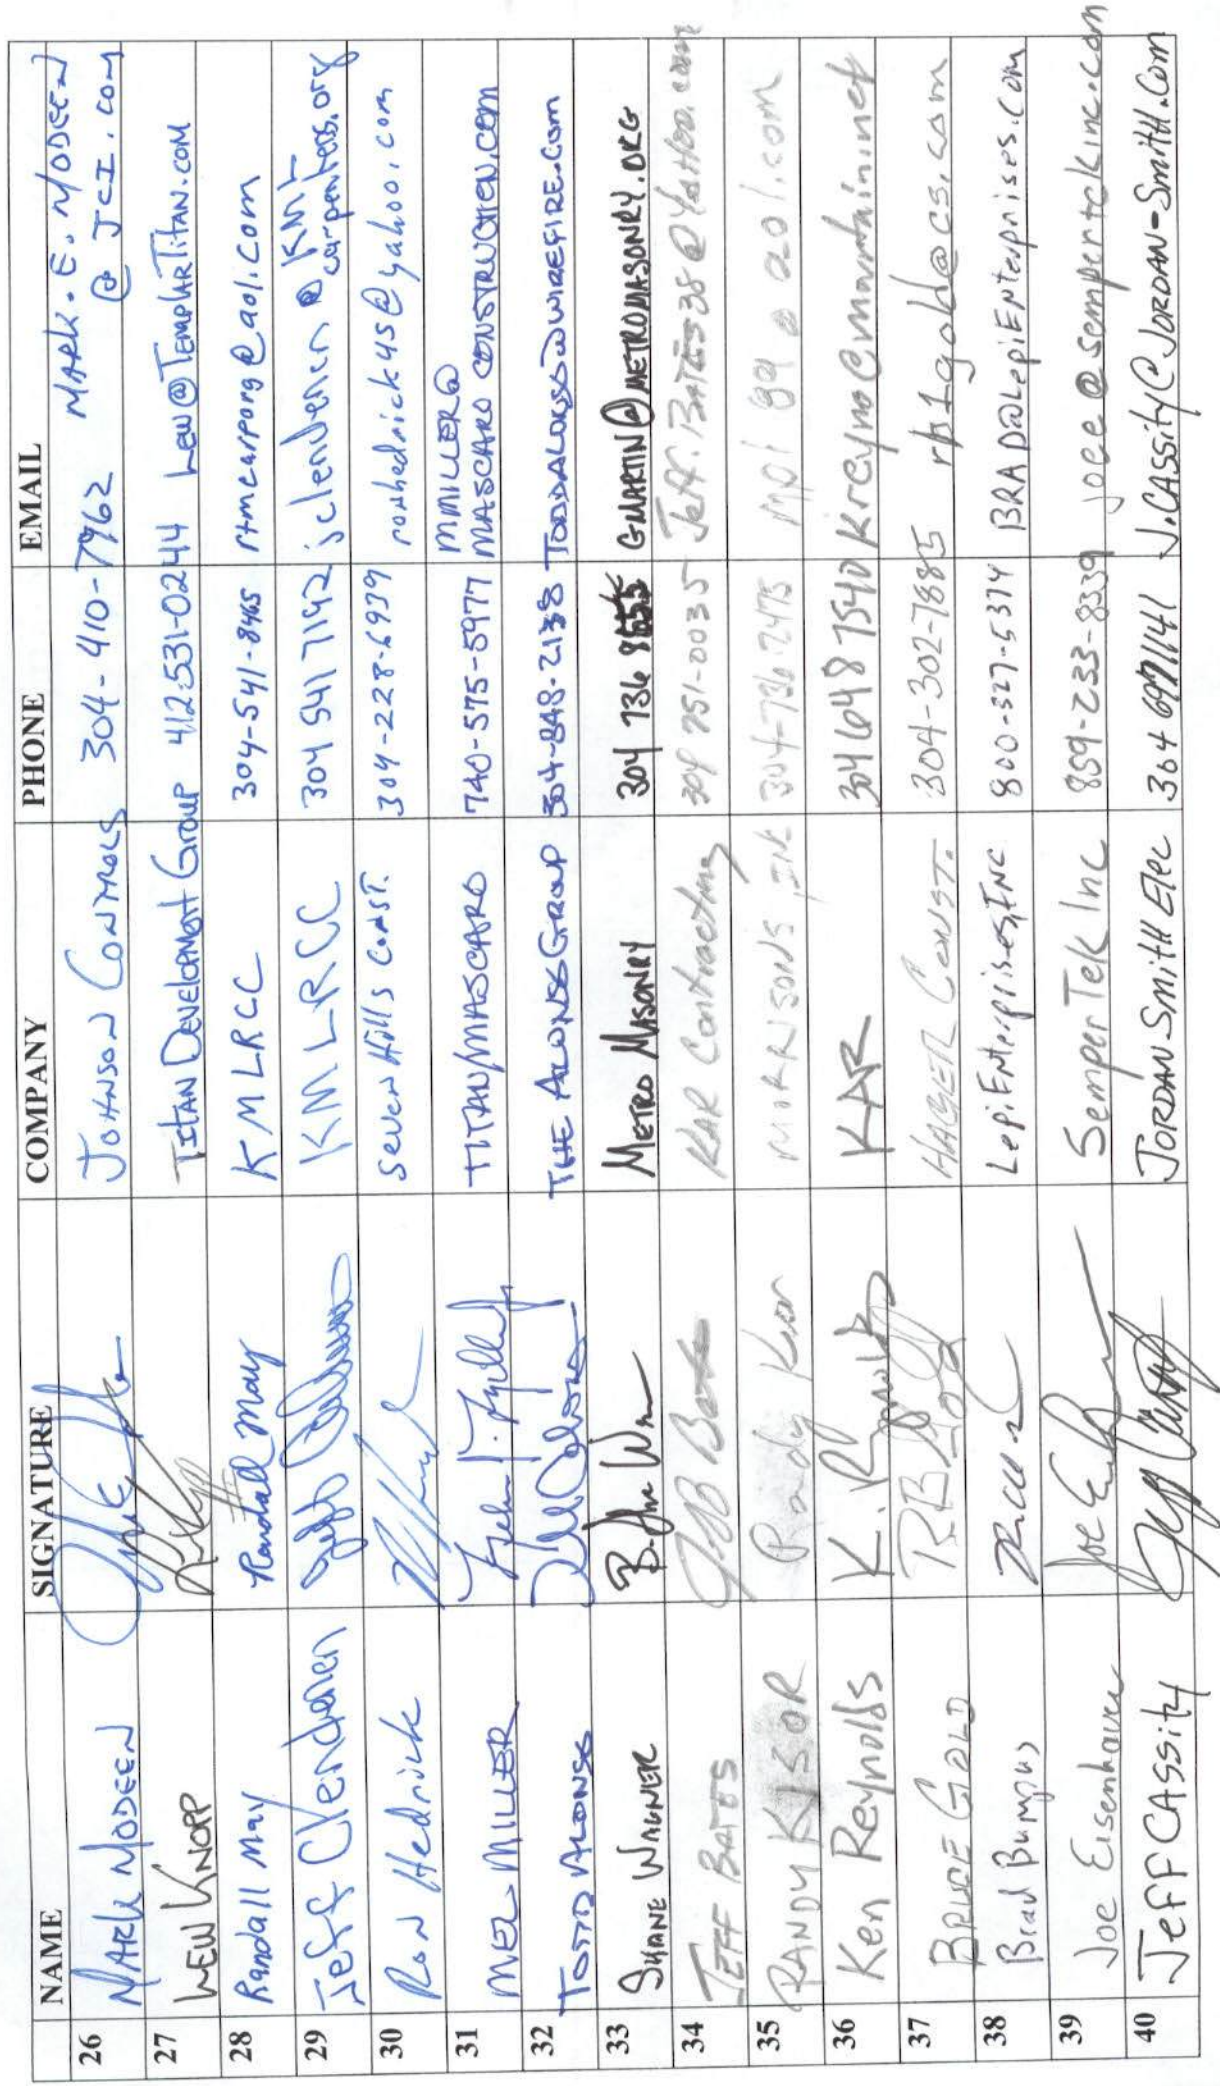 NAME SIGNATURE COMPANY PHONE EMAIL
26 MARK MODEEN JOHNSON CONTROLS 304-410-7962 MARK.E.MODEEN
@ JCI.COM
27 LEW KNOPP TITAN DEVELOPMENT GROUP 412-531-0244 LEW@TEMPLARTITAN.COM
28 Randall May Randall May KMLRCC 304-541-8465 rtmcarpong@aol.com
29 Jeff Clendenen KMLRCC 304 541 7192 jclendenen @ KML
carpenters.org
30 Ron Hedrick Seven Hills Const. 304-228-6939 ronhedrick45@yahoo.com
31 MEL MILLER TITAN/MASCARO 740-575-5977 MMILLER@
MASCARO CONSTRUCTION.COM
32 TODD ALONSO THE ALONSO GROUP 304-848-2138
33 SHANE WAGNER METRO MASONRY 304 736 GMARTIN@METROMASONRY.ORG
34 JEFF BATES KAR Contracting 304 751-0035 Jeff.BATES38@Yahoo.com
35 RANDY KISOR MORRISONS INC 304-736-2475 @ aol.com
36 Ken Reynolds K. Reynolds KAR 304 648 7540 kreyno@mountain.net
37 BRUCE GOLD HAGER CONST. 304-302-7885 rb1gold@cs.com
38 Brad Bumpus Lepi Enterprises, INC 800-327-5374 BRAD@LepiENterprises.com
39 Joe Eisenhauer SemperTek Inc 859-233-8339 joee@sempertekinc.com
40 Jeff CASSity JORDAN-Smith Elec 304 697 1141 J.CASSity@JORDAN-Smith.Com